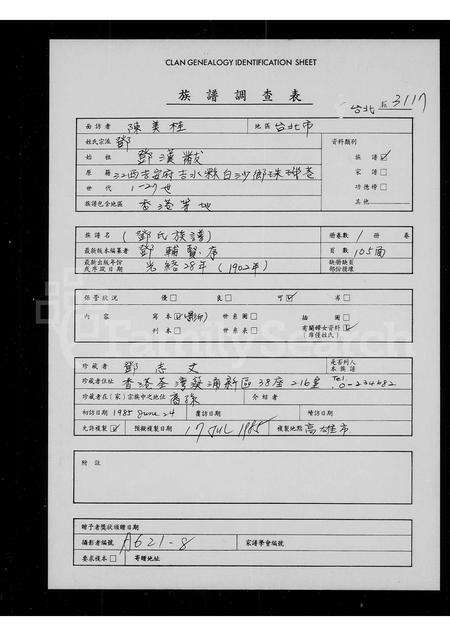 CLAN GENEALOGY IDENTIFICATION SHEET
族譜調查表
台北 3117
面訪者 陳美桂 地區 台北市
姓氏宗派 鄧 資料類別
始祖 鄧漢黻 族譜☑
原籍 江西吉安府吉水縣白沙鄉珠璣巷 家譜☐
世代 1-27世 功德榜☐
族譜包含地區 香港等地 其他
譜名 (鄧氏族譜) 冊卷數 1 冊 卷
最新版本編纂者 鄧輔賢存 頁數 105面
最新出版年份或序跋日期 光緒28年 (1902年) 缺冊缺頁部份授權
保管狀況 優☐ 良☐ 可☑ 劣☐
內容 寫本☑(影印) 世系圖☐ 插圖☐
刊本☐ 世系表☐ 有關婦女資料☑(單僅姓氏)
珍藏者 鄧志文 是否列入本族譜
珍藏者住址 香港荃灣葵涌新區38座216室 Tel. 0-234682
珍藏者在(家)宗族中之地位 裔孫 介紹者
初訪日期 1985 June 24 覆訪日期 續訪日期
允許複製☑ 預擬複製日期 17 JUL 1985 複製地點 高雄市
附註
贈予者獎狀頒贈日期
攝影者編號 A621-8 家譜學會編號
要求複本☐ 寄贈地址
FamilySearch